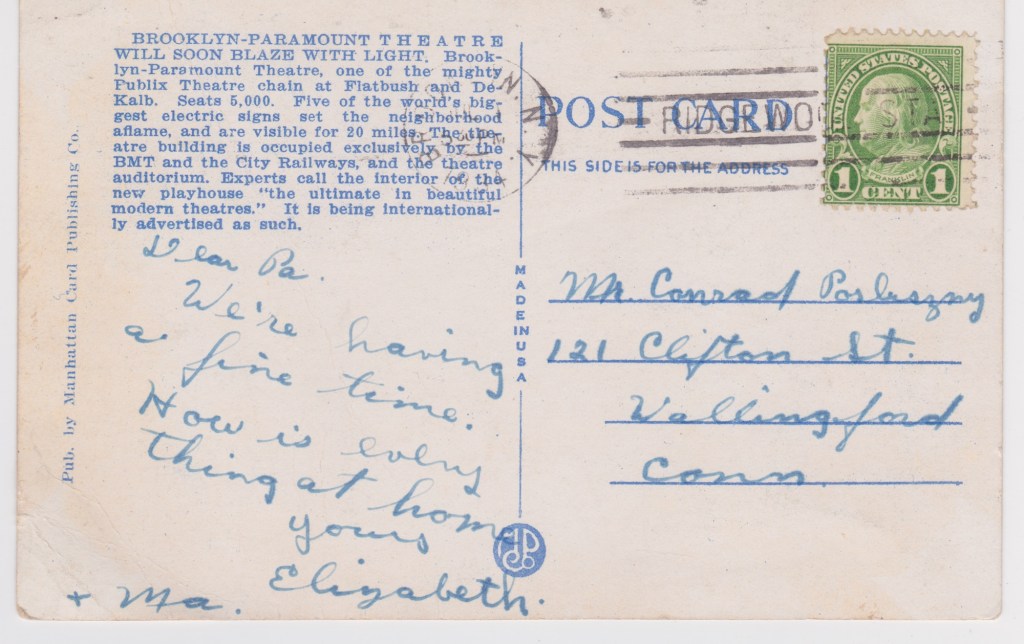 BROOKLYN-PARAMOUNT THEATRE
WILL SOON BLAZE WITH LIGHT. Brook-
lyn-Paramount Theatre, one of the mighty
Publix Theatre chain at Flatbush and De
Kalb. Seats 5,000. Five of the world's big-
gest electric signs set the neighborhood
aflame, and are visible for 20 miles. The the-
atre building is occupied exclusively by the
BMT and the City Railways, and the theatre
auditorium. Experts call the interior of the
new playhouse "the ultimate in beautiful
modern theatres." It is being international-
ly advertised as such.
Pub. by Manhattan Card Publishing Co.
Dear Pa.
We're having
a fine time.
How is every
thing at home
Yours
Elizabeth.
+ Ma.
MADE IN USA
POST CARD
THIS SIDE IS FOR THE ADDRESS
N.Y.
RIDGEWOO STA
UNITED STATES POSTAGE
FRANKLIN
1 CENT 1
Mr. Conrad
121 Clifton St.
Wallingford
Conn.